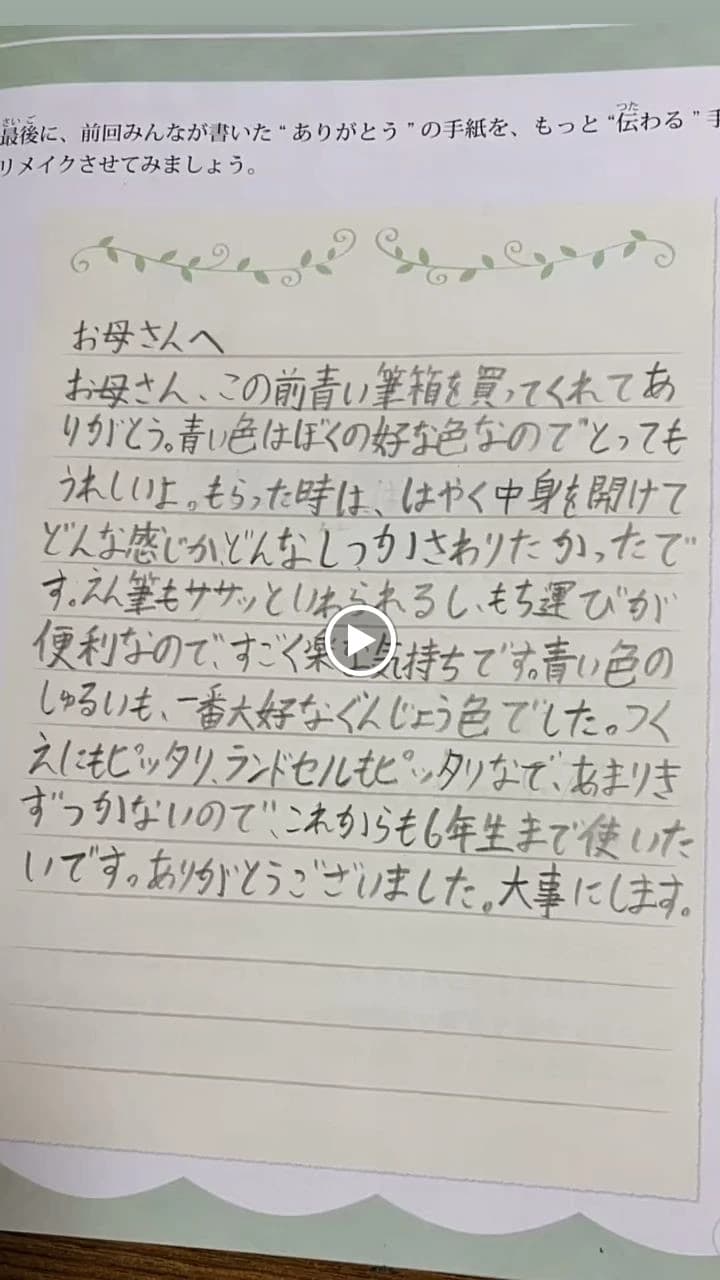 さいご
つた
最後に、前回みんなが書いた“ありがとう”の手紙を、もっと“伝わる”手
リメイクさせてみましょう。
お母さんへ
お母さん、この前青い筆箱を買ってくれてあ
りがとう。青い色はぼくの好な色なのでとっても
うれしいよ。もらった時は、はやく中身を開けて
どんな感じか、どんなしつかさわりたかったで
す。えん筆もササッといれられるし、もち運びが
便利なので、すごく楽な気持ちです。青い色の
しゅるいも、一番大好なぐんじょう色でした。つく
えにもピッタリ、ランドセルもピッタリなで、あまりき
ずつかないので、これからも6年生まで使いた
いです。ありがとうございました。大事にします。